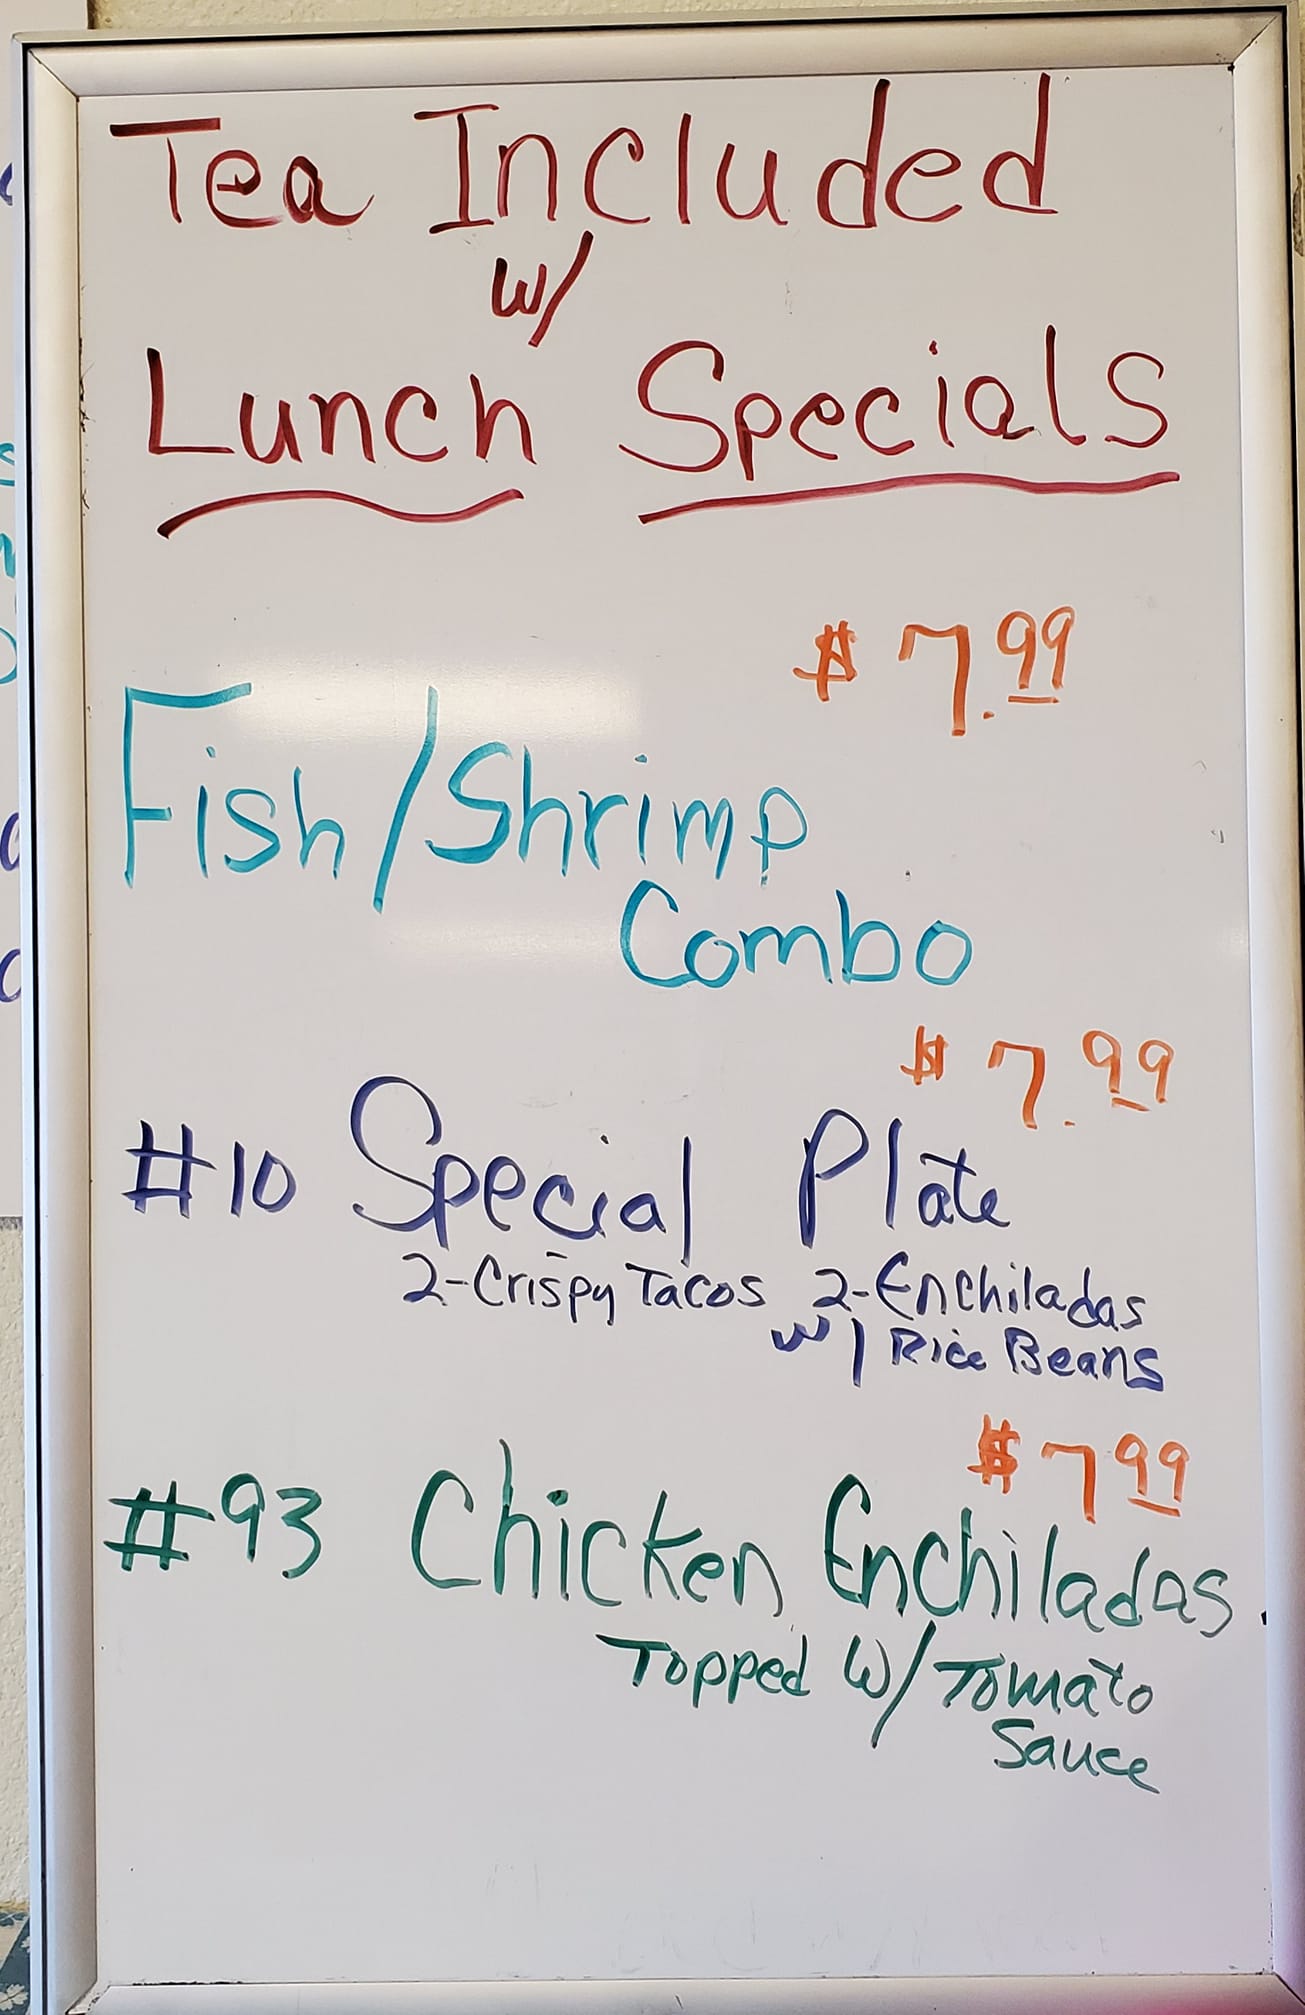 Tea Included
w/
Lunch Specials
$7.99
Fish/Shrimp
Combo
$7.99
#10 Special Plate
2-Crispy Tacos 2-Enchiladas
w/ Rice Beans
$799
#93 Chicken Enchiladas
Topped w/ Tomato
Sauce